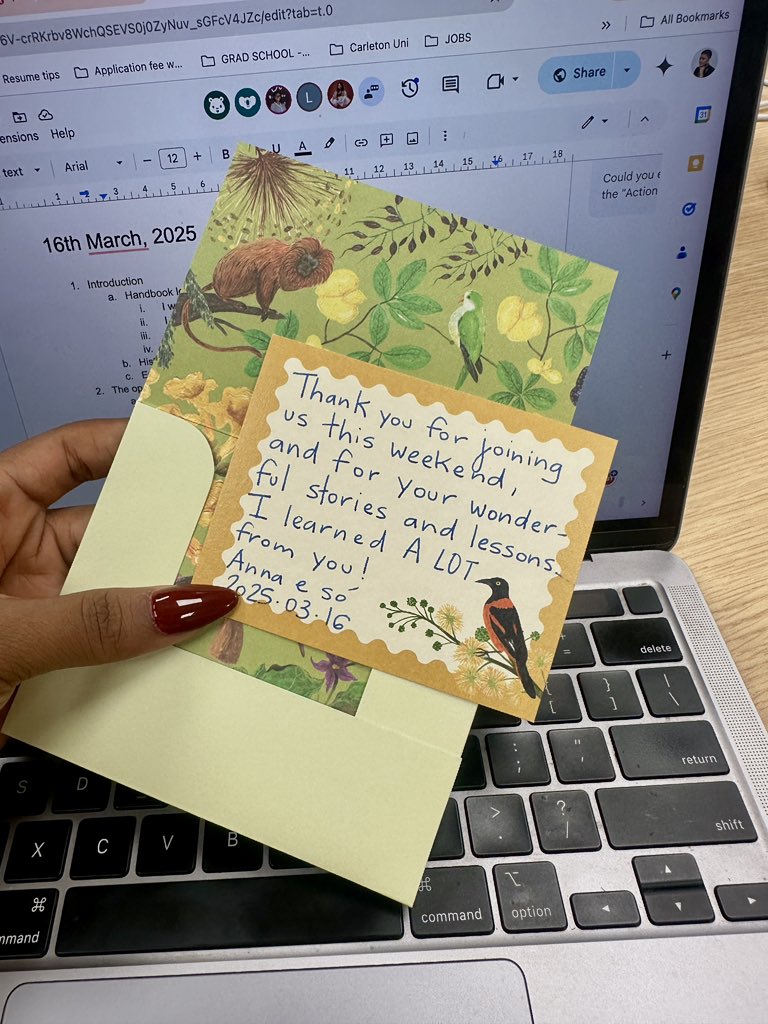 6V-crRKrbv8WchQSEVS0j0ZyNuv_sGFcV4JZc/edit?tab=t.0
» All Bookmarks
Resume tips Application fee w... GRAD SCHOOL -... Carleton Uni JOBS
L Share
ensions Help
text Arial − 12 + B U A
1 2 3 4 5 6 11 12 13 14 15 16 17 18
31
Could you e
the "Action
16th March, 2025
1. Introduction
a. Handbook
i. I w
ii. I
iii.
iv.
b. His
c. E
2. The op
a
Thank you for joining
us this weekend,
and for your wonder-
ful stories and lessons.
I learned A LOT
from you!
Anna e só
2025.03.16
delete
+
=
{
[
}
]
|
\
S D
:
;
"
'
return
X C V B
>
.
?
/
shift
⌘
mmand
⌘
command
⌥
option